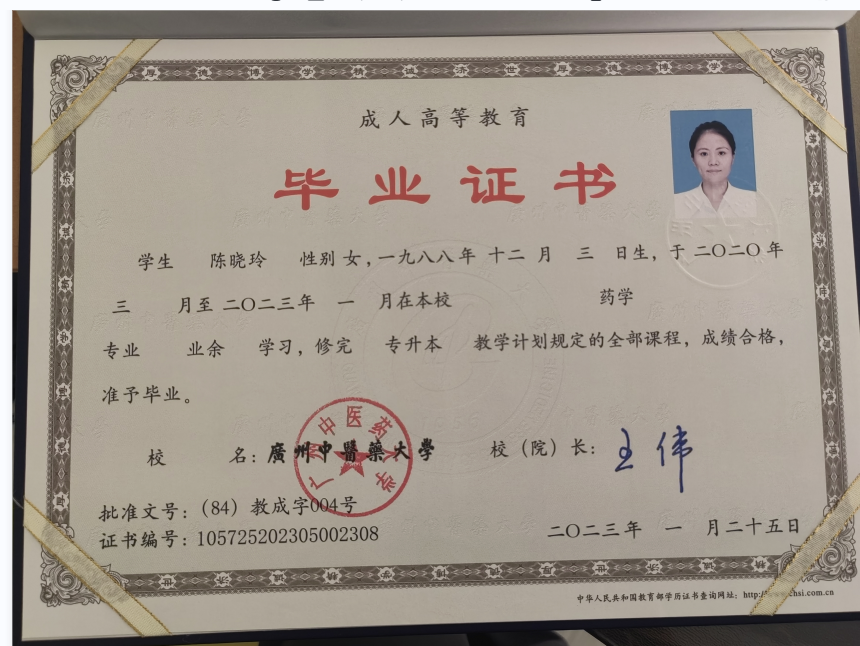 成人高等教育
毕业证书
学生 陈晓玲 性别 女，一九八八年 十二 月 三 日生，于 二〇二〇 年
三 月至 二〇二三年 一 月在本校 药学
专业 业余 学习，修完 专升本 教学计划规定的全部课程，成绩合格，
准予毕业。
校 名：廣州中醫藥大學 校（院）长：王伟
广州中医药大学
批准文号：（84）教成字004号
证书编号：105725202305002308
二〇二三年 一 月二十五日
中华人民共和国教育部学历证书查询网址：http://www.chsi.com.cn